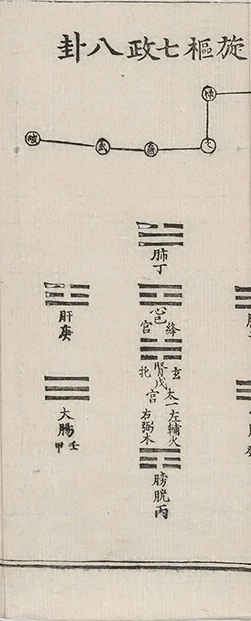 旋樞七政八卦
祿
文
廉
武
破
肺丁
心包
絳
宮
腎戊
宮
玄
太一左輔火
托
右弼木
膀胱丙
肝庚
大腸
壬
甲